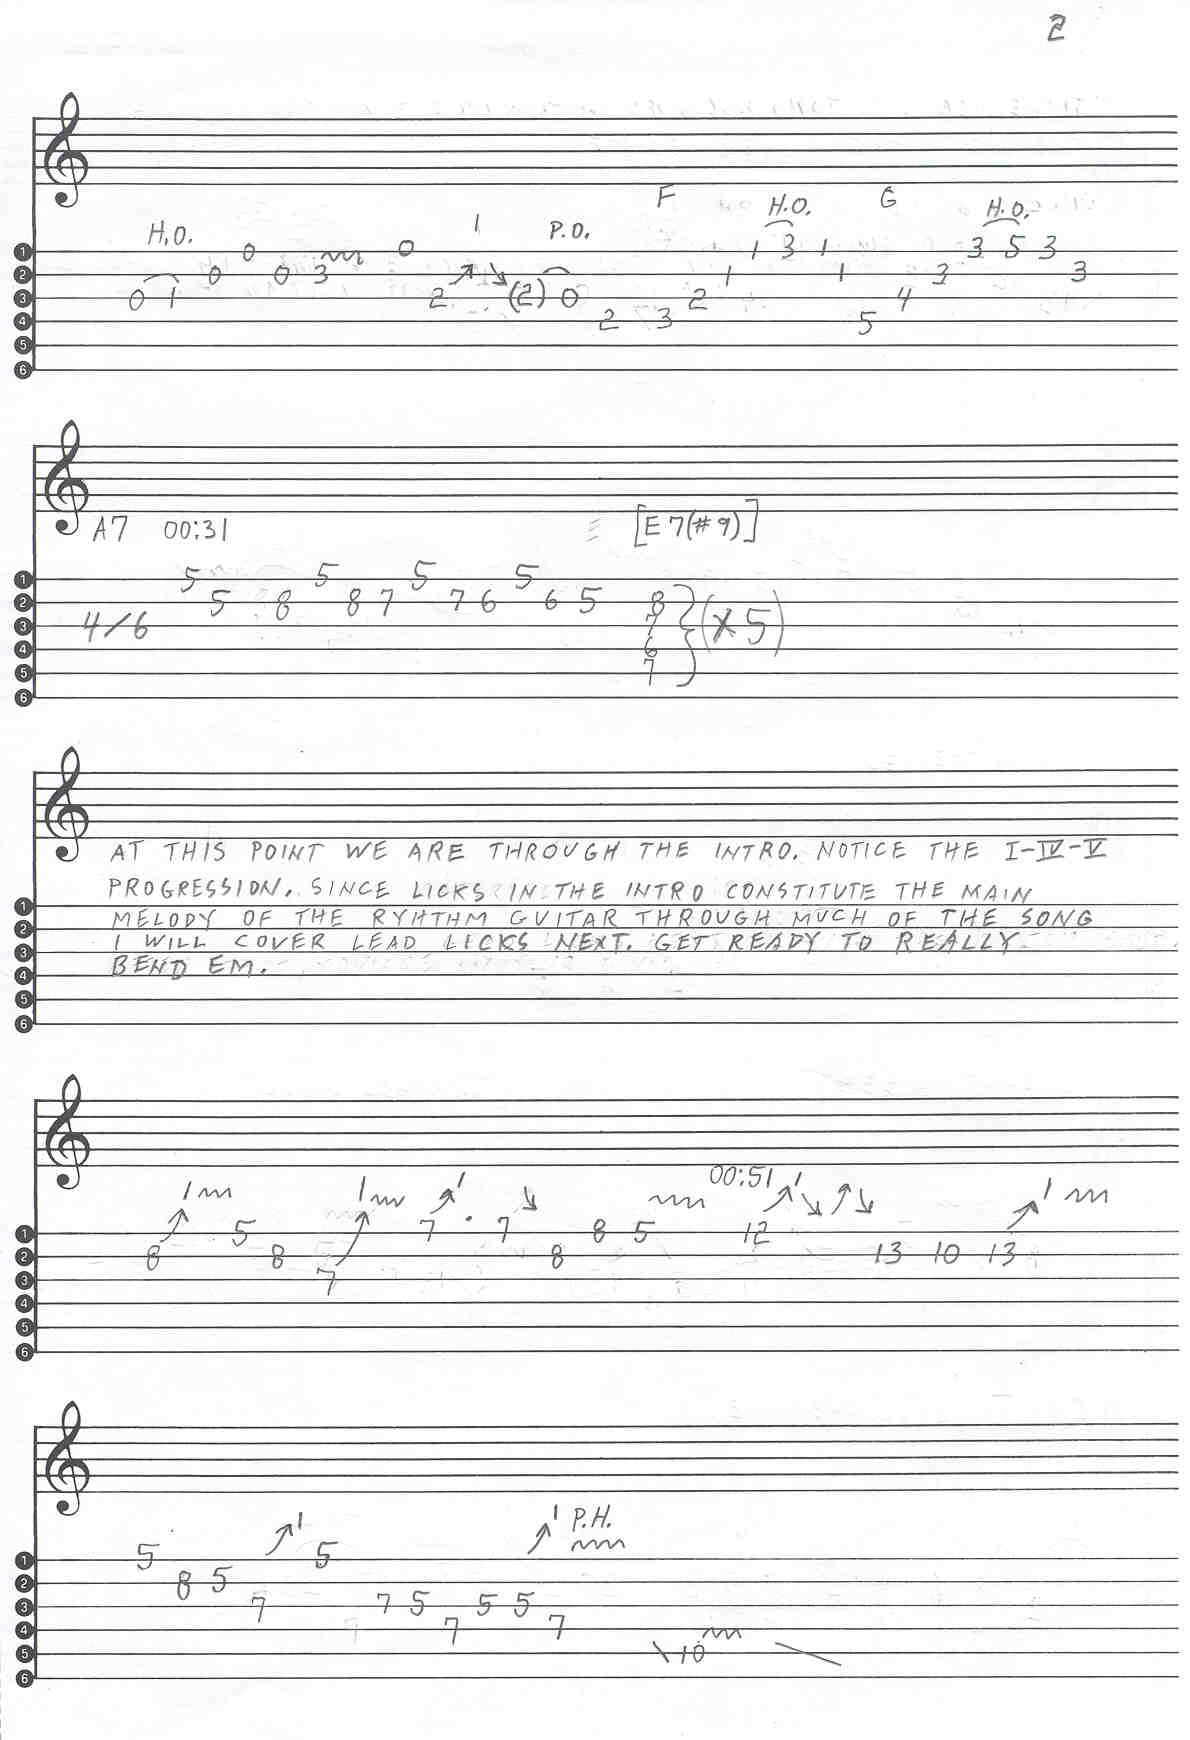 2
F G
H.O. 1 P.O. H.O. H.O.
0 1 0 0 0 3 0 2 (2) 0 2 3 2 1 1 3 1 1 5 4 3 3 5 3 3
1
2
3
4
5
6
A7 00:31 [E7(#9)]
4/6 5 5 8 5 8 7 5 7 6 5 6 5 8 7 6 7 (X5)
1
2
3
4
5
6
AT THIS POINT WE ARE THROUGH THE INTRO. NOTICE THE I-IV-V
PROGRESSION. SINCE LICKS IN THE INTRO CONSTITUTE THE MAIN
MELODY OF THE RYHTHM GUITAR THROUGH MUCH OF THE SONG
I WILL COVER LEAD LICKS NEXT. GET READY TO REALLY
BEND EM.
1
2
3
4
5
6
1 1 1 00:51 1 1
8 5 8 7 7 7 8 8 5 12 13 10 13
1
2
3
4
5
6
1 1 P.H.
5 8 5 7 5 7 5 7 5 5 7 \10
1
2
3
4
5
6